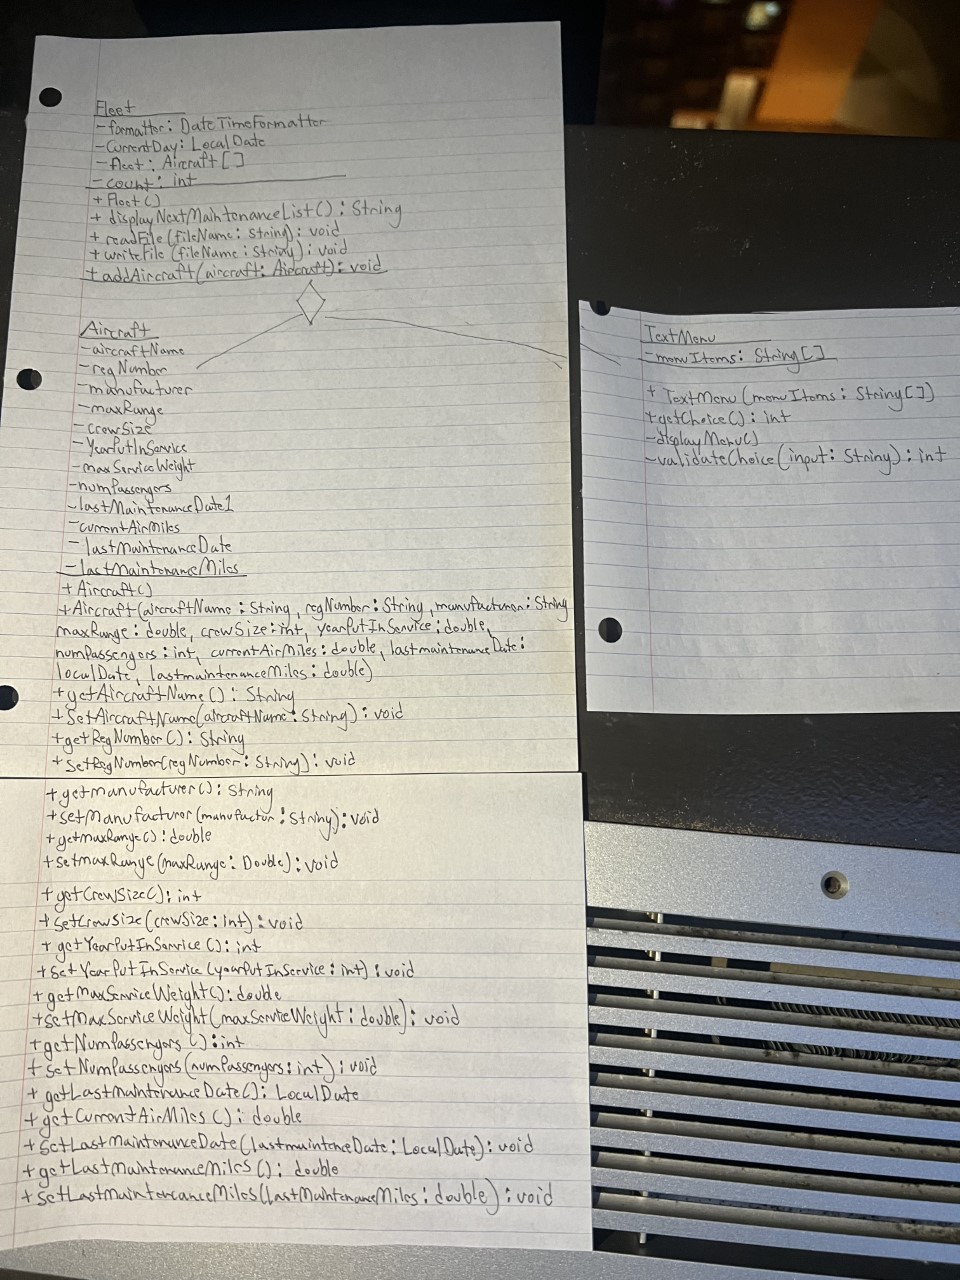 Fleet
-formatter: DateTimeFormatter
-CurrentDay: LocalDate
-fleet: Aircraft[]
-count: int
+Fleet()
+displayNextMaintenanceList(): String
+readFile(fileName: String): void
+writeFile(fileName: String): void
+addAircraft(aircraft: Aircraft): void
Aircraft
-aircraftName
-regNumber
-manufacturer
-maxRange
-crewSize
-YearPutInService
-maxServiceWeight
-numPassengers
-lastMaintenanceDate1
-currentAirMiles
-lastMaintenanceDate
-lastMaintenanceMiles
+Aircraft()
+Aircraft(aircraftName: String, regNumber: String, manufacturer: String
maxRange: double, crewSize: int, yearPutInService: double,
numPassengers: int, currentAirMiles: double, lastmaintenanceDate:
localDate, lastmaintenanceMiles: double)
+getAircraftName(): String
+SetAircraftName(aircraftName: String): void
+getRegNumber(): String
+setRegNumber(regNumber: String): void
+getmanufacturer(): String
+setManufacturer(manufactur: String): void
+getmaxRange(): double
+setmaxRange(maxRange: Double): void
+getCrewSize(): int
+setCrewSize(crewSize: int): void
+getYearPutInService(): int
+setYearPutInService(yearPutInService: int): void
+getMaxServiceWeight(): double
+setMaxServiceWeight(maxServiceWeight: double): void
+getNumPassengers(): int
+setNumPassengers(numPassengers: int): void
+getLastmaintenanceDate(): LocalDate
+getCurrentAirMiles(): double
+setLastMaintenanceDate(lastmainteneDate: LocalDate): void
+getLastmaintenanceMiles(): double
+setLastmaintencanceMiles(lastMaintenanceMiles: double): void
TextMenu
-menuItems: String[]
+TextMenu(menuItems: String[])
+getChoice(): int
-displayMenu()
-validateChoice(input: String): int